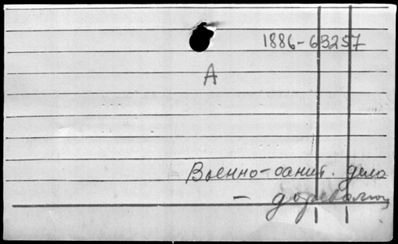 1886-63257
A
Военно-санит. дела
– дореволюц